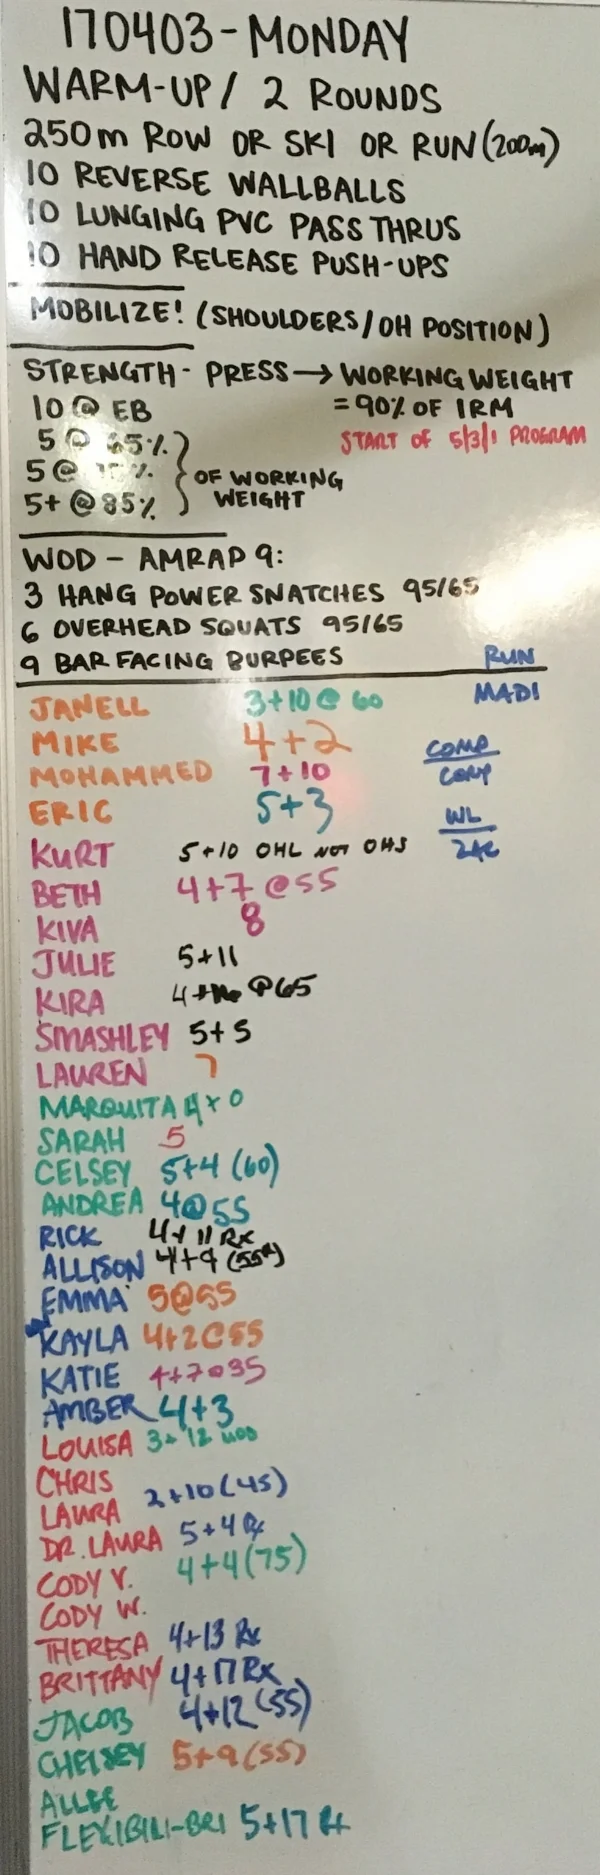 170403-MONDAY
WARM-UP/ 2 ROUNDS
250m ROW OR SKI OR RUN (200m)
10 REVERSE WALLBALLS
10 LUNGING PVC PASS THRUS
10 HAND RELEASE PUSH-UPS
MOBILIZE! (SHOULDERS/OH POSITION)
STRENGTH - PRESS → WORKING WEIGHT
10 @ EB = 90% OF 1RM
5 @ 65% START OF 5/3/1 PROGRAM
5 @ % OF WORKING
5+ @ 85% WEIGHT
WOD - AMRAP 9:
3 HANG POWER SNATCHES 95/65
6 OVERHEAD SQUATS 95/65
9 BAR FACING BURPEES RUN
JANELL 3+10 @ 60 MADI
MIKE 4+2 COMP
MOHAMMED 7+10
ERIC 5+3 WL
KURT 5+10 OHL NOT OHS
BETH 4+7 @55
KIVA 8
JULIE 5+11
KIRA 4+ @65
SMASHLEY 5+5
LAUREN 7
MARQUITA 4+0
SARAH 5
CELSEY 5+4 (60)
ANDREA 4@55
RICK 4+11 RX
ALLISON 4+9
EMMA 5@55
KAYLA 4+2@55
KATIE 4+7@35
AMBER 4+3
LOUISA 3+12
CHRIS
LAURA 2+10 (45)
DR. LAURA 5+4 Rx
CODY V. 4+4 (75)
CODY W.
THERESA 4+13 Rx
BRITTANY 4+17 Rx
JACOB 4+12 (55)
CHELSEY 5+9 (55)
ALLEE
FLEXIBILI-BRI 5+17 Rx